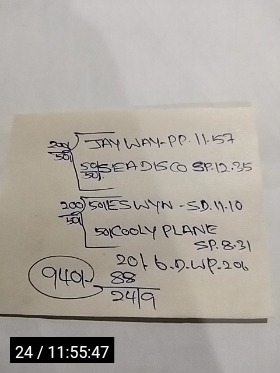 200/50/ JAY WAY-PP. 11.57
50/50/ SEADISCO SP.12.35
200/50/ 50/ESWYN - S.D.11.10
50/COOLY PLANE
SP. 8.31
20/. 6. D.W.P. 206
940/- 88
24/9
24 / 11:55:47